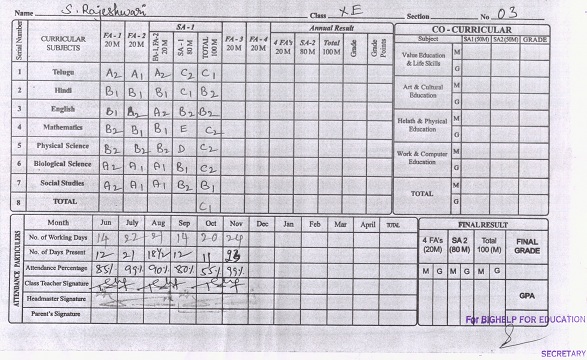 Name S. Rajeshwari Class X E Section No 03
Serial Number CURRICULAR SUBJECTS FA - 1 20 M FA - 2 20 M SA - 1 FA-1, FA-2 20 M SA - 1 80 M TOTAL 100 M FA - 3 20 M FA - 4 20 M Annual Result 4 FA's 20 M SA-2 80 M Total 100 M Grade Grade Points
1 Telugu A2 A1 A2 C2 C1
2 Hindi B1 B1 B1 C1 B2
3 English B1 B2 A2 B2 B2
4 Mathematics B2 B1 B1 E C2
5 Physical Science B2 B2 B2 D C2
6 Biological Science A2 A1 A1 B1 C2
7 Social Studies A2 A1 A1 B2 B1
8 TOTAL C1
CO - CURRICULAR
Subject SA1 (50M) SA2 (50M) GRADE
Value Education & Life Skills M G
Art & Cultural Education M G
Helath & Physical Education M G
Work & Computer Education M G
TOTAL M G
ATTENDANCE PARTICULERS
Month Jun July Aug Sep Oct Nov Dec Jan Feb Mar April TOTAL
No. of Working Days 14 22 21 14 20 24
No. of Days Present 12 21 18½ 12 11 23
Attendance Percentage 85% 99% 90% 80% 55% 99%
Class Teacher Signature
Headmaster Signature
Parent's Signature
FINAL RESULT
4 FA's (20M) SA 2 (80 M) Total 100 (M) FINAL GRADE
M G M G M G
GPA
For BIGHELP FOR EDUCATION
SECRETARY